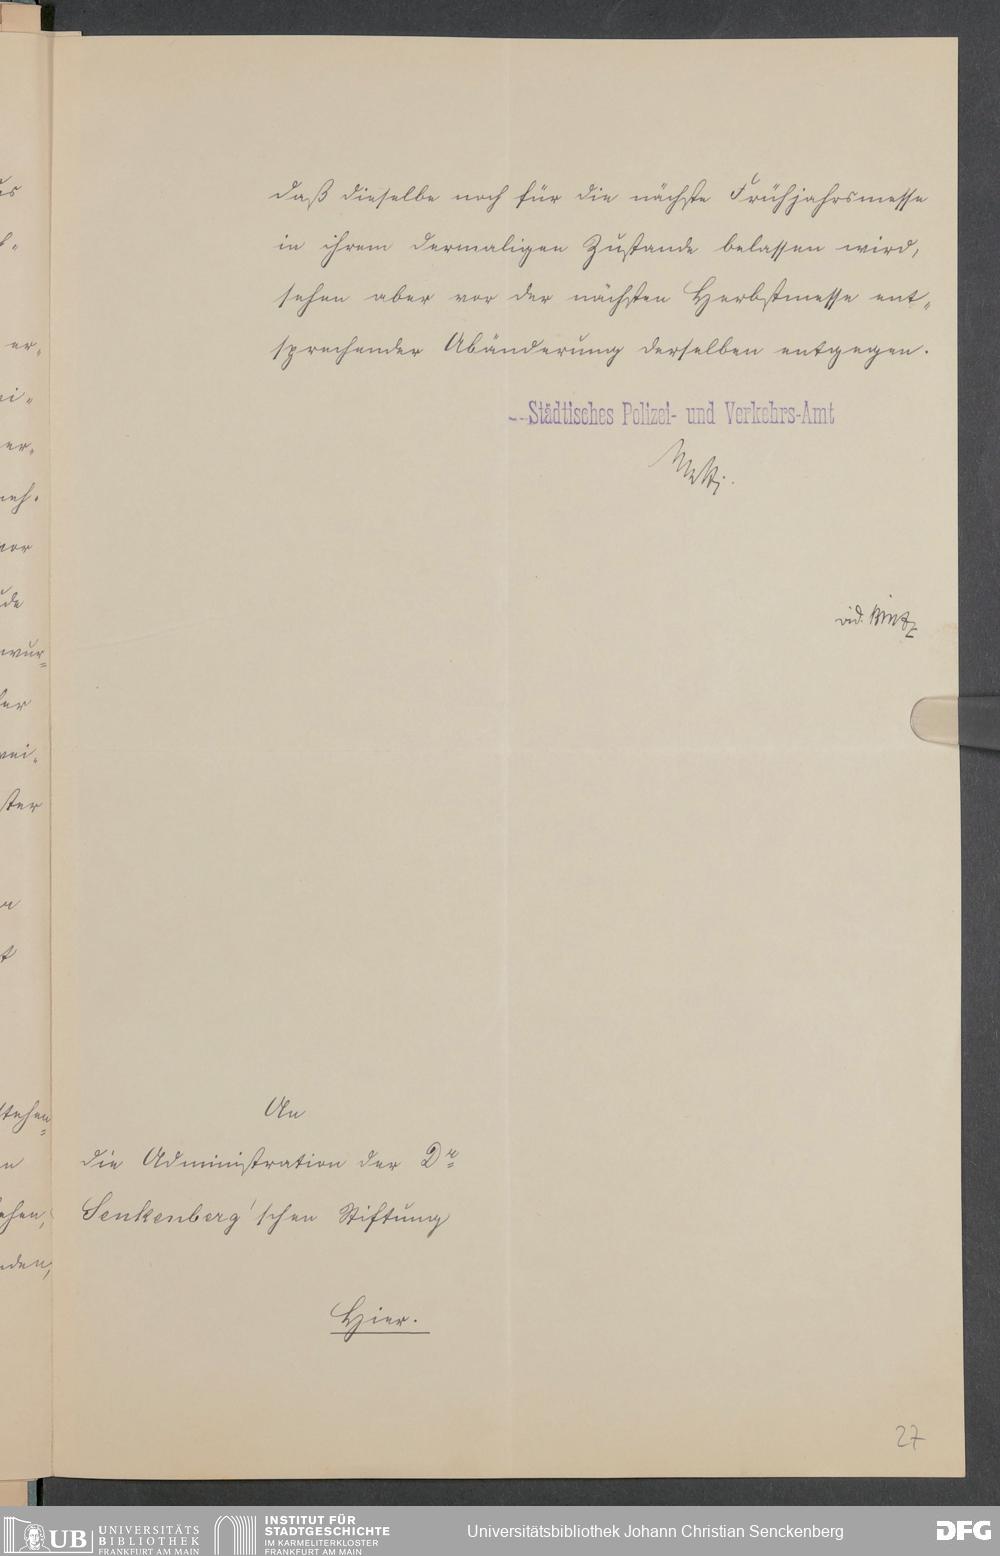 daß dieselbe noch für die nächste Frühjahrsmesse
in ihrem dermaligen Zustande belassen wird,
sehen aber vor der nächsten Herbstmesse ent-
sprechender Abänderung derselben entgegen.
Städtisches Polizei- und Verkehrs-Amt
vid.
An
die Administration der Dr.
Senkenberg'schen Stiftung
Hier.
27
er-
er-
vor
wur-
ster
UB UNIVERSITÄTS
BIBLIOTHEK
FRANKFURT AM MAIN
INSTITUT FÜR
STADTGESCHICHTE
IM KARMELITERKLOSTER
FRANKFURT AM MAIN
Universitätsbibliothek Johann Christian Senckenberg
DFG